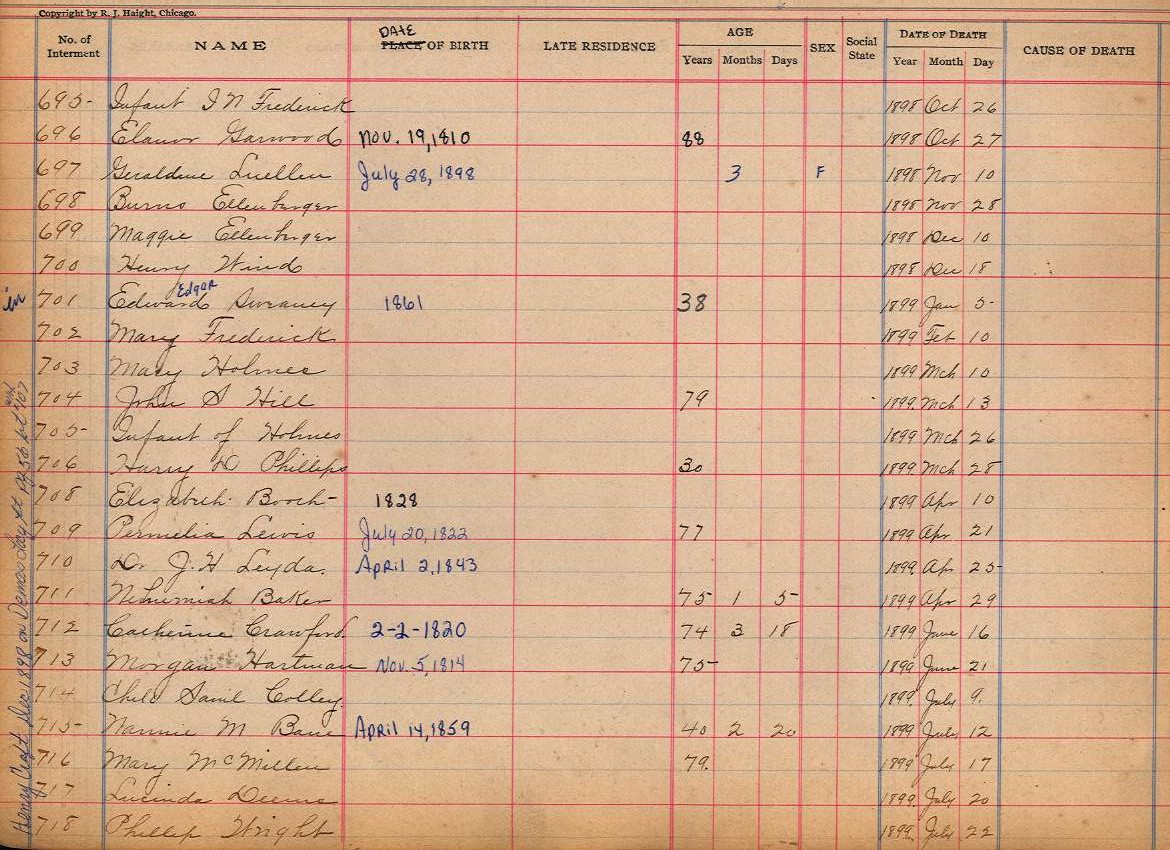 Copyright by R. J. Haight, Chicago.
No. of Interment NAME DATE PLACE OF BIRTH LATE RESIDENCE AGE Years Months Days SEX Social State DATE OF DEATH Year Month Day CAUSE OF DEATH
695 Infant I N Frederick 1898 Oct 26
696 Elanor Garwood Nov. 19, 1810 88 1898 Oct 27
697 Geraldine Luellen July 28, 1898 3 F 1898 Nov 10
698 Burns Ellenberger 1898 Nov 28
699 Maggie Ellenberger 1898 Dec 10
700 Henry Wind 1898 Dec 18
in 701 Edward Edgar Sweaney 1861 38 1899 Jan 5
702 Mary Frederick 1899 Feb 10
703 Mary Holmes 1899 Mch 10
704 John S Hill 79 1899 Mch 13
705 Infant of Holmes 1899 Mch 26
706 Harry D Phillips 30 1899 Mch 28
708 Elizabeth Booth 1828 1899 Apr 10
709 Permelia Lewis July 20, 1822 77 1899 Apr 21
710 Dr. J. H Leyda. April 2, 1843 1899 Ap 25
711 Nehemiah Baker 75 1 5 1899 Apr 29
712 Catherine Crawford. 2-2-1820 74 3 18 1899 June 16
713 Morgan Hartman Nov. 5, 1814 75 1899 June 21
714 Child Saml Colley. 1899 July 9.
715 Nannie M Bane April 14, 1859 40 2 20 1899 July 12
716 Mary McMillen 79. 1899 July 17
717 Lucinda Deems 1899 July 20
718 Phillip Wright 1899 July 22
Henry Craft Dec 1898 on Demas Lot pg 56